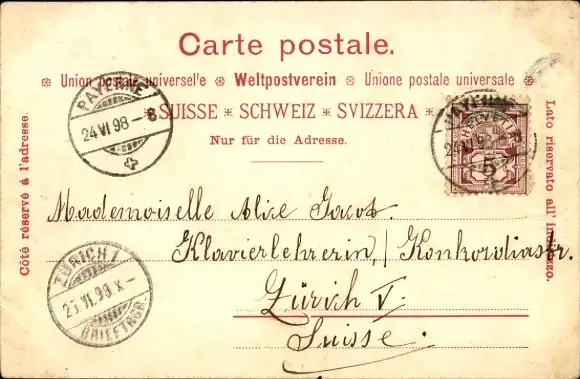 Carte postale.
Union postale universel'e ❋ Weltpostverein ❋ Unione postale universale
SUISSE ❋ SCHWEIZ ❋ SVIZZERA
Nur für die Adresse.
Côté réservé à l'adresse.
Lato riservato all' indirizzo.
PAYERNE
24 VI 98 - 8
PAYERNE
24 VI 98
HELVETIA
5
Mademoiselle Alice Jacob.
Klavierlehrerin, / Konkordiastr.
Zürich V.
Suisse.
ZÜRICH 1
25 VI 98 X -
BRIEFTRGR.